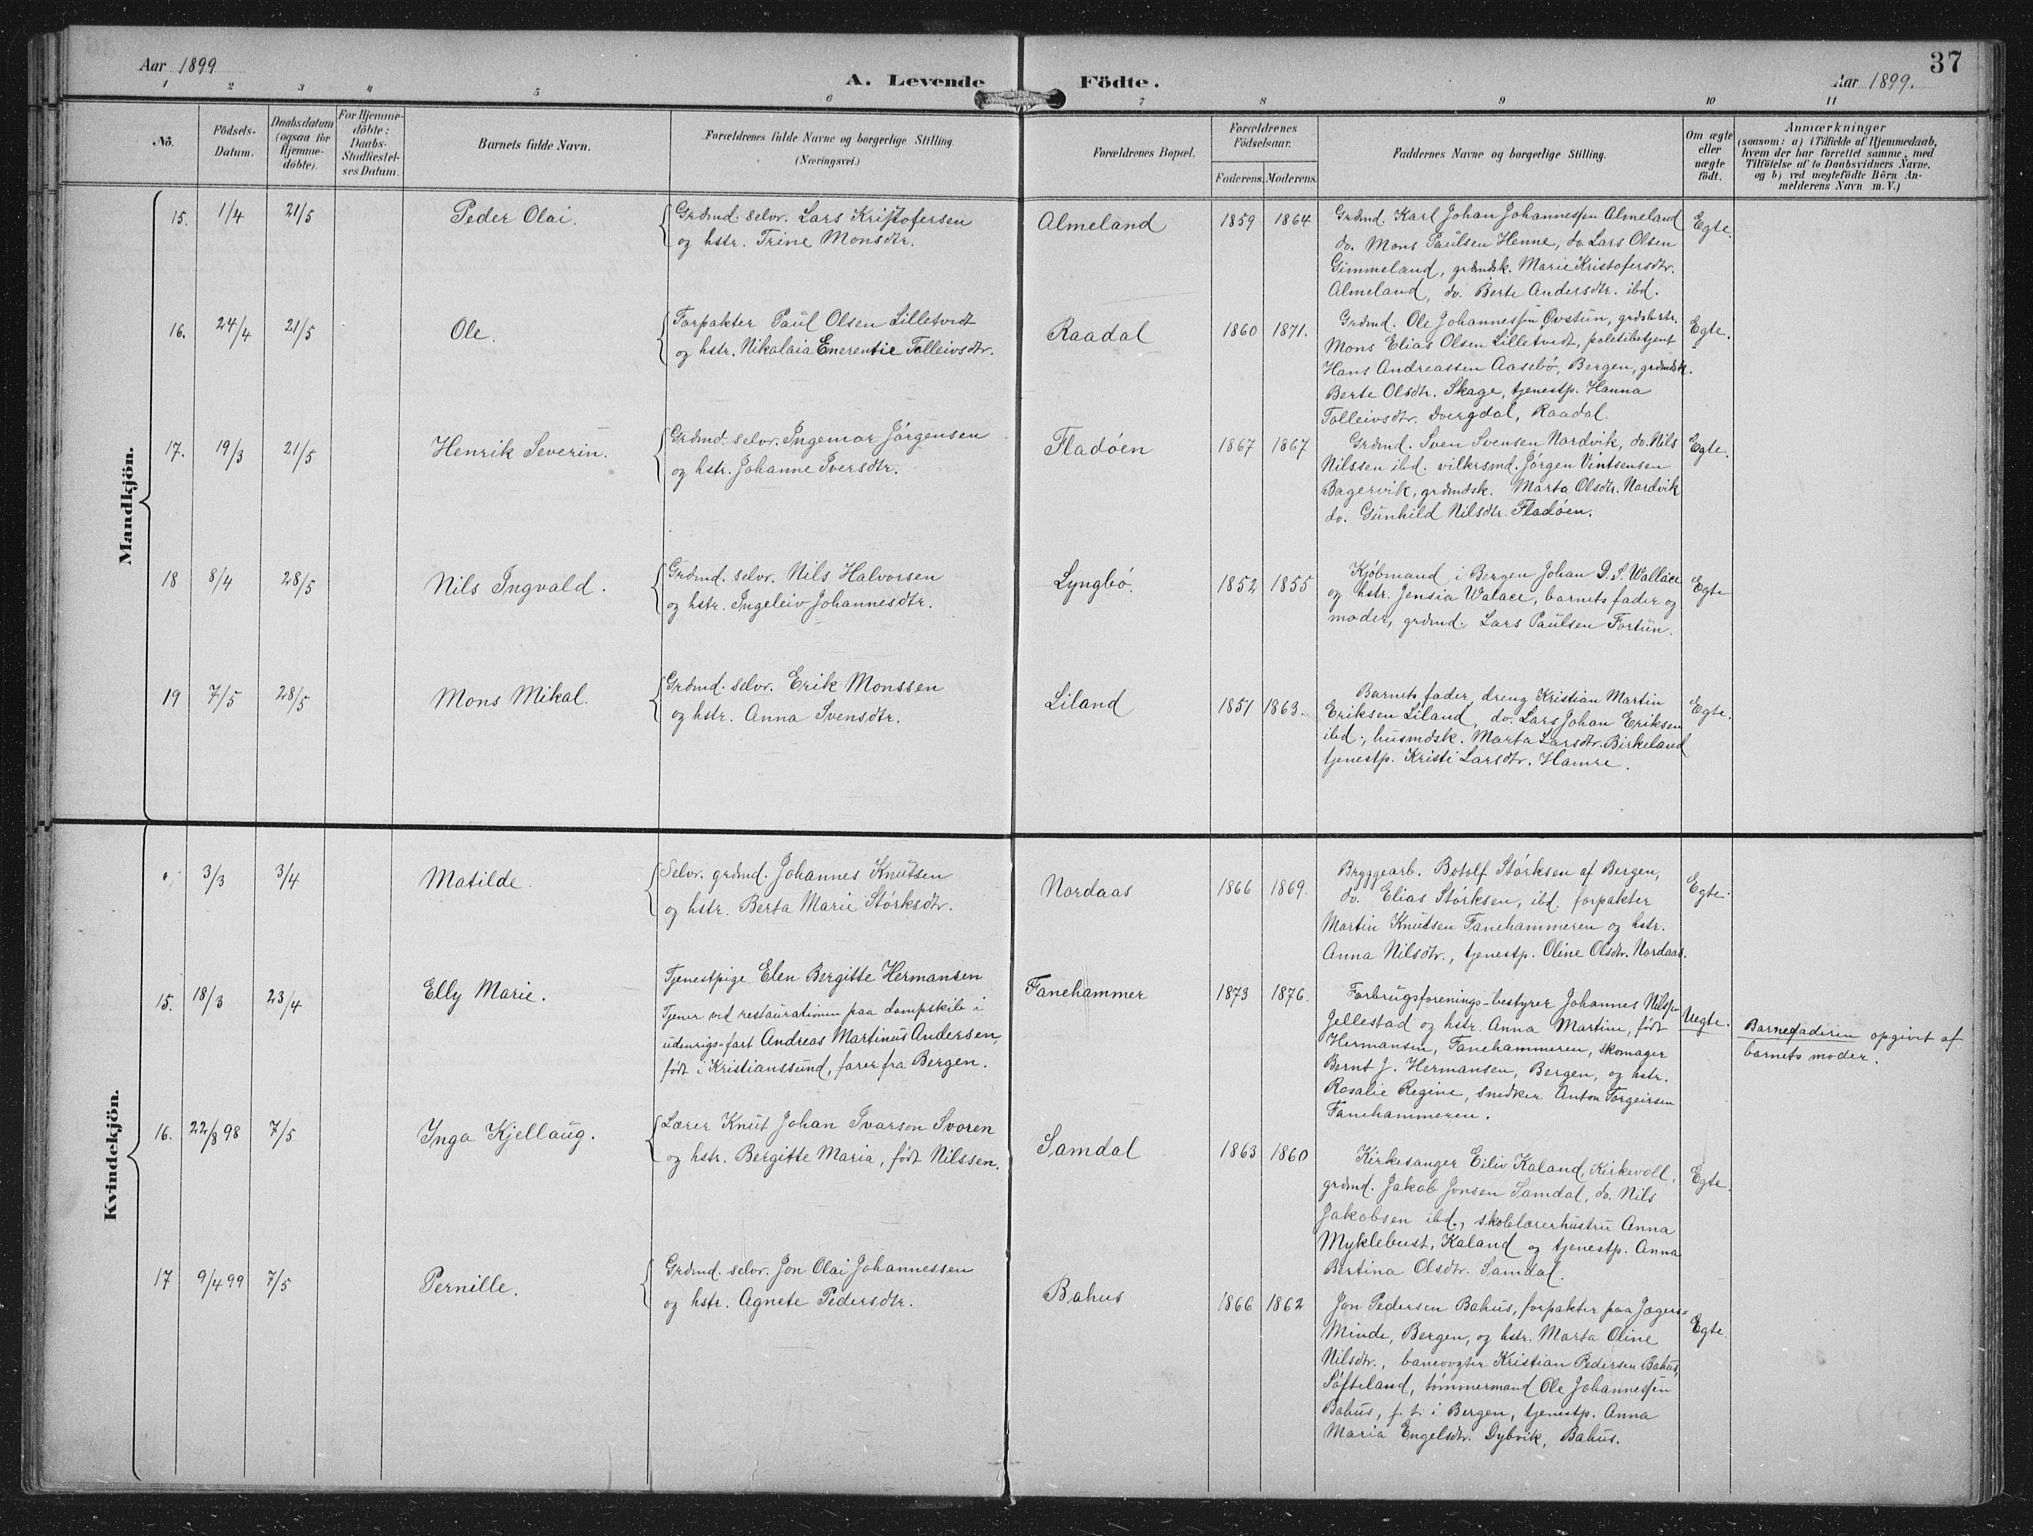 37
Aar 1899
A. Levende Födte.
Aar 1899.
1 2 3 4 5 6 7 8 9 10 11
No.
Födsels-
Datum.
Daabsdatum
(ogsaa for
Hjemme-
döbte).
For Hjemme-
döbte:
Daabs-
Stadfæstel-
ses Datum.
Barnets fulde Navn.
Forældrenes fulde Navne og borgerlige Stilling
(Næringsvei.)
Forældrenes Bopæl.
Forældrenes
Födselsaar.
Faderens. Moderens.
Faddernes Navne og borgerlige Stilling.
Om ægte
eller
uægte
født.
Anmærkninger
(saasom: a) i Tilfælde af Hjemmedaab,
hvem der har forrettet samme, med
Tilföielse af to Daabsvidners Navne,
og b) ved uægtefödte Börn An-
melderens Navn m. V.)
Mandkjön.
15. 1/4 21/5 Peder Olai.
Grdmd. selv. Lars Kristofersen
og hstr. Trine Monsdtr.
Almeland 1859 1864
Grdmd. Karl Johan Johannessen Almeland
do. Mons Paulsen Henne, do. Lars Olsen
Gimmeland, grdmdsk. Marie Kristofersdtr.
Almeland, do. Berte Andersdtr. ibd.
Egte.
16. 24/4 21/5 Ole.
Forpakter Paul Olsen Lilletvedt
og hstr. Nikolaia Enerentie Tolleivsdtr.
Raadal 1860 1871.
Grdmd. Ole Johannessen Øvstun, grdsbestr.
Mons Elias Olsen Lilletvedt, politibetjent
Hans Andreassen Aasebö, Bergen, grdmdsk.
Berte Olsdtr. Skage, tjenestp. Hanna
Tolleivsdtr. Dvergdal, Raadal.
Egte.
17. 19/3 21/5 Henrik Severin.
Grdmd. selv. Ingemar Jörgensen
og hstr. Johanne Iversdtr.
Fladöen 1867 1867
Grdmd. Sven Svensen Nordvik, do. Nils
Nilssen ibd. vilkrsmd. Jörgen Vintsensen
Bagervik, grdmdsk. Marta Olsdtr. Nordvik
do. Gunhild Nilsdtr. Fladöen.
Egte.
18 8/4 28/5 Nils Ingvald.
Grdmd. selv. Nils Halvorsen
og hstr. Ingeleiv Johannesdtr.
Lyngbö. 1852 1855
Kjöbmand i Bergen Johan D. S. Wallace
og hstr. Jensia Walace, barnets fader og
moder, grdmd. Lars Paulsen Fortun.
Egte
19 7/5 28/5 Mons Mikal.
Grdmd. selv. Erik Monssen
og hstr. Anna Svensdtr.
Liland 1851 1863.
Barnets fader, dreng Kristian Martin
Eriksen Liland, do. Lars Johan Eriksen
ibd., husmdsk. Marta Larsdtr. Birkeland
tjenestp. Kristi Larsdtr. Hamre.
Egte.
Kvindekjön.
3/3 3/4 Matilde.
Selv. grdmd. Johannes Knutsen
og hstr. Berta Marie Störksdtr.
Nordaas 1866 1869.
Bryggearb. Botolf Störksen af Bergen,
do. Elias Störksen, ibd. forpakter
Martin Knutsen Fanehammeren og hstr.
Anna Nilsdtr., tjenestp. Oline Olsdtr. Nordaas.
Egte.
15. 18/3 23/4 Elly Marie.
Tjenestpige Elen Bergitte Hermansen
Tjener ved restaurationen paa dampskib i
udenrigs-fart Andreas Martinus Andersen,
født i Kristianssund, farer fra Bergen.
Fanehammer 1873 1876.
Forbrugsforenings-bestyrer Johannes Nilsen
Jellestad og hstr. Anna Martine, født
Hermansen, Fanehammeren, skomager
Bernt J. Hermansen, Bergen, og hstr.
Rosalie Regine, snedker Anton Torgeirsen
Fanehammeren.
Uegte.
Barnefaderen opgivet af
barnets moder.
16. 22/8 98 7/5 Inga Kjellaug.
Lærer Knut Johan Ivarson Svoren
og hstr. Bergitte Maria, født Nilssen.
Samdal 1863 1860
Kirkesanger Eiliv Kaland, Kirkevoll,
grdmd. Jakob Jonsen Samdal, do. Nils
Jakobsen ibd., skolelærerhustru Anna
Myklebust, Kaland og tjenestp. Anna
Bertina Olsdtr. Samdal.
Egte.
17 9/4 99 7/5 Pernille.
Grdmd. selv. Jon Olai Johannessen
og hstr. Agnete Pedersdtr.
Bahus 1866 1862
Jon Pedersen Bahus, forpakter paa Jægers-
Minde, Bergen, og hstr. Marta Oline
Nilsdtr., banevogter Kristian Pedersen Bahus,
Söfteland, tömmermand Ole Johannessen
Bahus, f. t. i Bergen, tjenestp. Anna
Maria Engelsdtr. Dybvik, Bahus.
Egte.